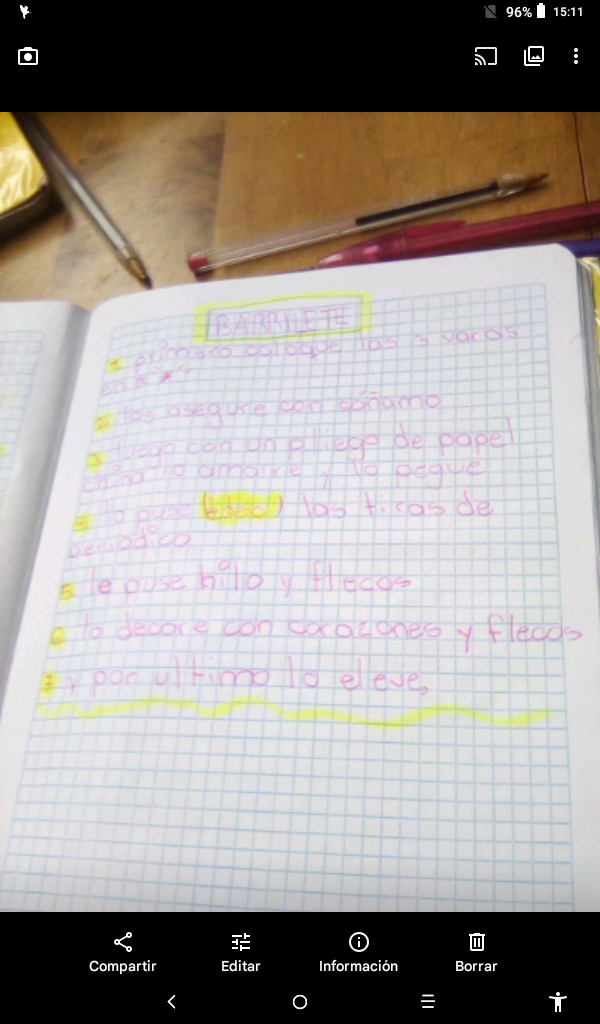 96% 15:11
BARRILETE
1. primero coloque las 3 varas
en
2. las asegure con cáñamo
3. luego con un pliego de papel
china lo amarre y lo pegue
4. lo puse las tiras de
periodico
5. le puse hilo y flecos
6. lo decore con corazones y flecos
7. y por ultimo lo eleve.
Compartir Editar Información Borrar